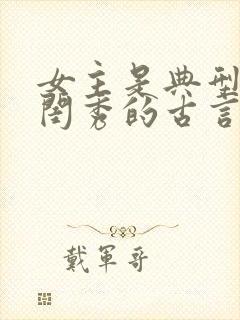 女主是典型
閨秀的古言
戴軍哥